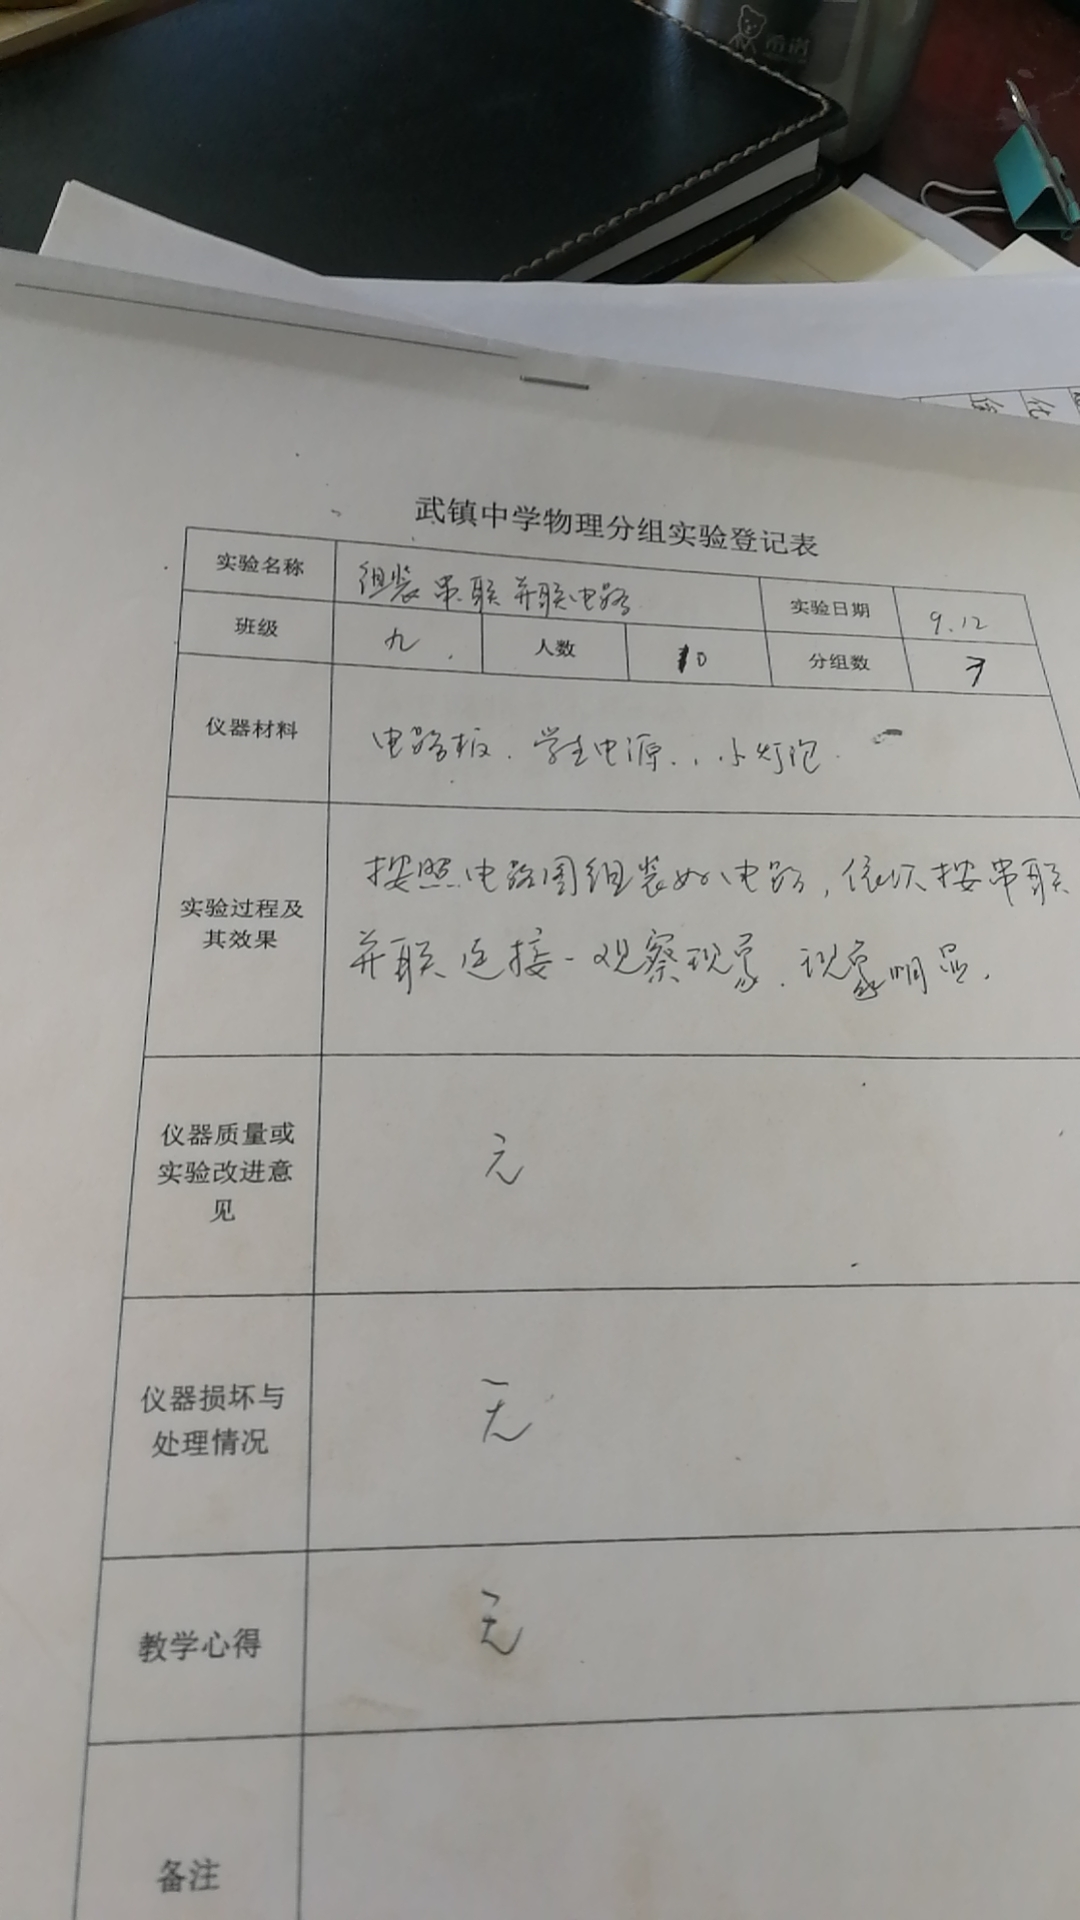 希诺
武镇中学物理分组实验登记表
实验名称 组装串联并联电路 实验日期 9.12
班级 九. 人数 10 分组数 3
仪器材料 电路板.学生电源..小灯泡.
按照电路图组装好电路,依次按串联
实验过程及
其效果
并联连接-观察现象.现象明显.
仪器质量或
实验改进意
见
无
仪器损坏与
处理情况
无
教学心得 无
备注